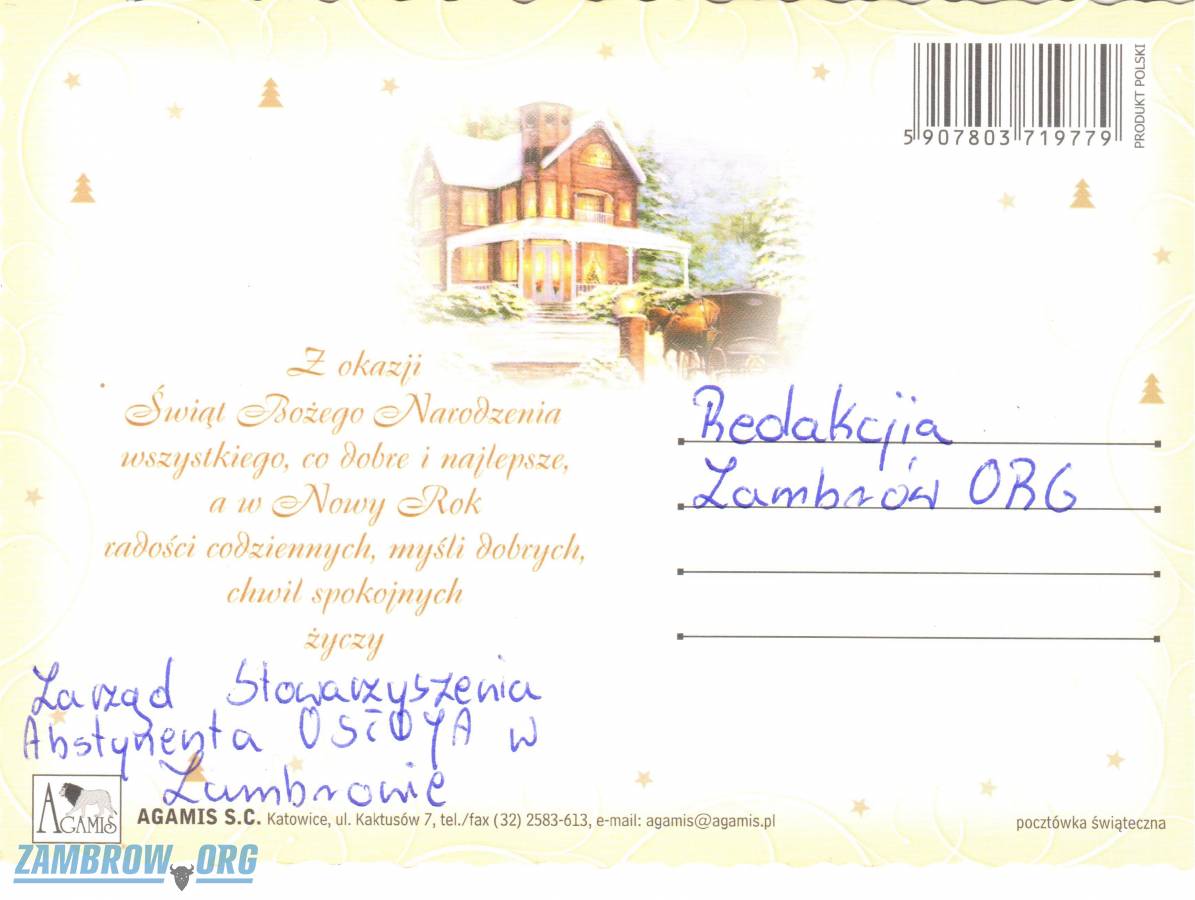 5 907803 719779
PRODUKT POLSKI
Z okazji
Świąt Bożego Narodzenia
wszystkiego, co dobre i najlepsze,
a w Nowy Rok
radości codziennych, myśli dobrych,
chwil spokojnych
życzy
Redakcjia
Zambrów ORG
Zarząd Stowarzyszenia
Abstynenta OSTOYA w
Zambrowie
AGAMIS
AGAMIS S.C. Katowice, ul. Kaktusów 7, tel./fax (32) 2583-613, e-mail: agamis@agamis.pl
pocztówka świąteczna
ZAMBROW.ORG